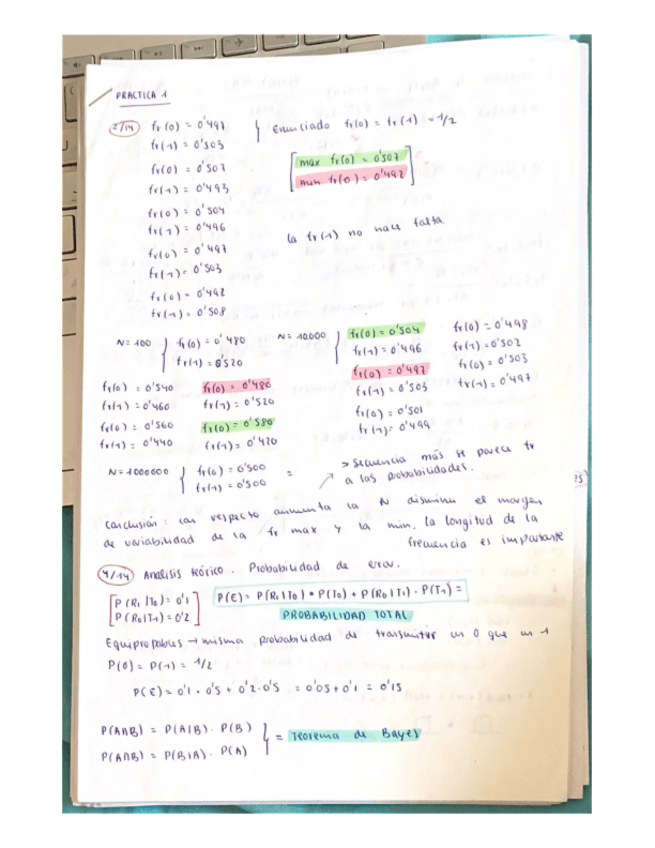 PRACTICA 1
2/14 fr(0) = 0'497 } Enunciado fr(0) = fr(1) = 1/2
fr(1) = 0'503
fr(0) = 0'507
fr(1) = 0'493
[max fr(0) = 0'507
min fr(0) = 0'492]
fr(0) = 0'504
fr(1) = 0'496
la fr(1) no hace falta
fr(0) = 0'497
fr(1) = 0'503
fr(0) = 0'492
fr(1) = 0'508
N = 100 { fr(0) = 0'480
fr(1) = 0'520
fr(0) = 0'540 fr(0) = 0'480
fr(1) = 0'460 fr(1) = 0'520
fr(0) = 0'560 fr(0) = 0'580
fr(1) = 0'440 fr(1) = 0'420
N = 10000 { fr(0) = 0'504 fr(0) = 0'498
fr(1) = 0'496 fr(1) = 0'502
fr(0) = 0'497 fr(0) = 0'503
fr(1) = 0'503 fr(1) = 0'497
fr(0) = 0'501
fr(1) = 0'499
N = 1000000 { fr(0) = 0'500 =
fr(1) = 0'500
> Secuencia más se parece fr
a las probabilidades.
Conclusión: con respecto aumenta la N disminu el margen
de variabilidad de la fr max y la min. la longitud de la
frecuencia es importante
4/14 Analisis teórico. Probabilidad de error.
[P(R1|T0) = 0'1
P(R0|T1) = 0'2]
P(E) = P(R1|T0) * P(T0) + P(R0|T1) · P(T1) =
PROBABILIDAD TOTAL
Equiprobables → misma probabilidad de transmitir un 0 que un 1
P(0) = P(1) = 1/2
P(E) = 0'1 · 0'5 + 0'2 · 0'5 = 0'05 + 0'1 = 0'15
P(A∩B) = P(A|B) · P(B) } = Teorema de Bayes
P(A∩B) = P(B|A) · P(A)